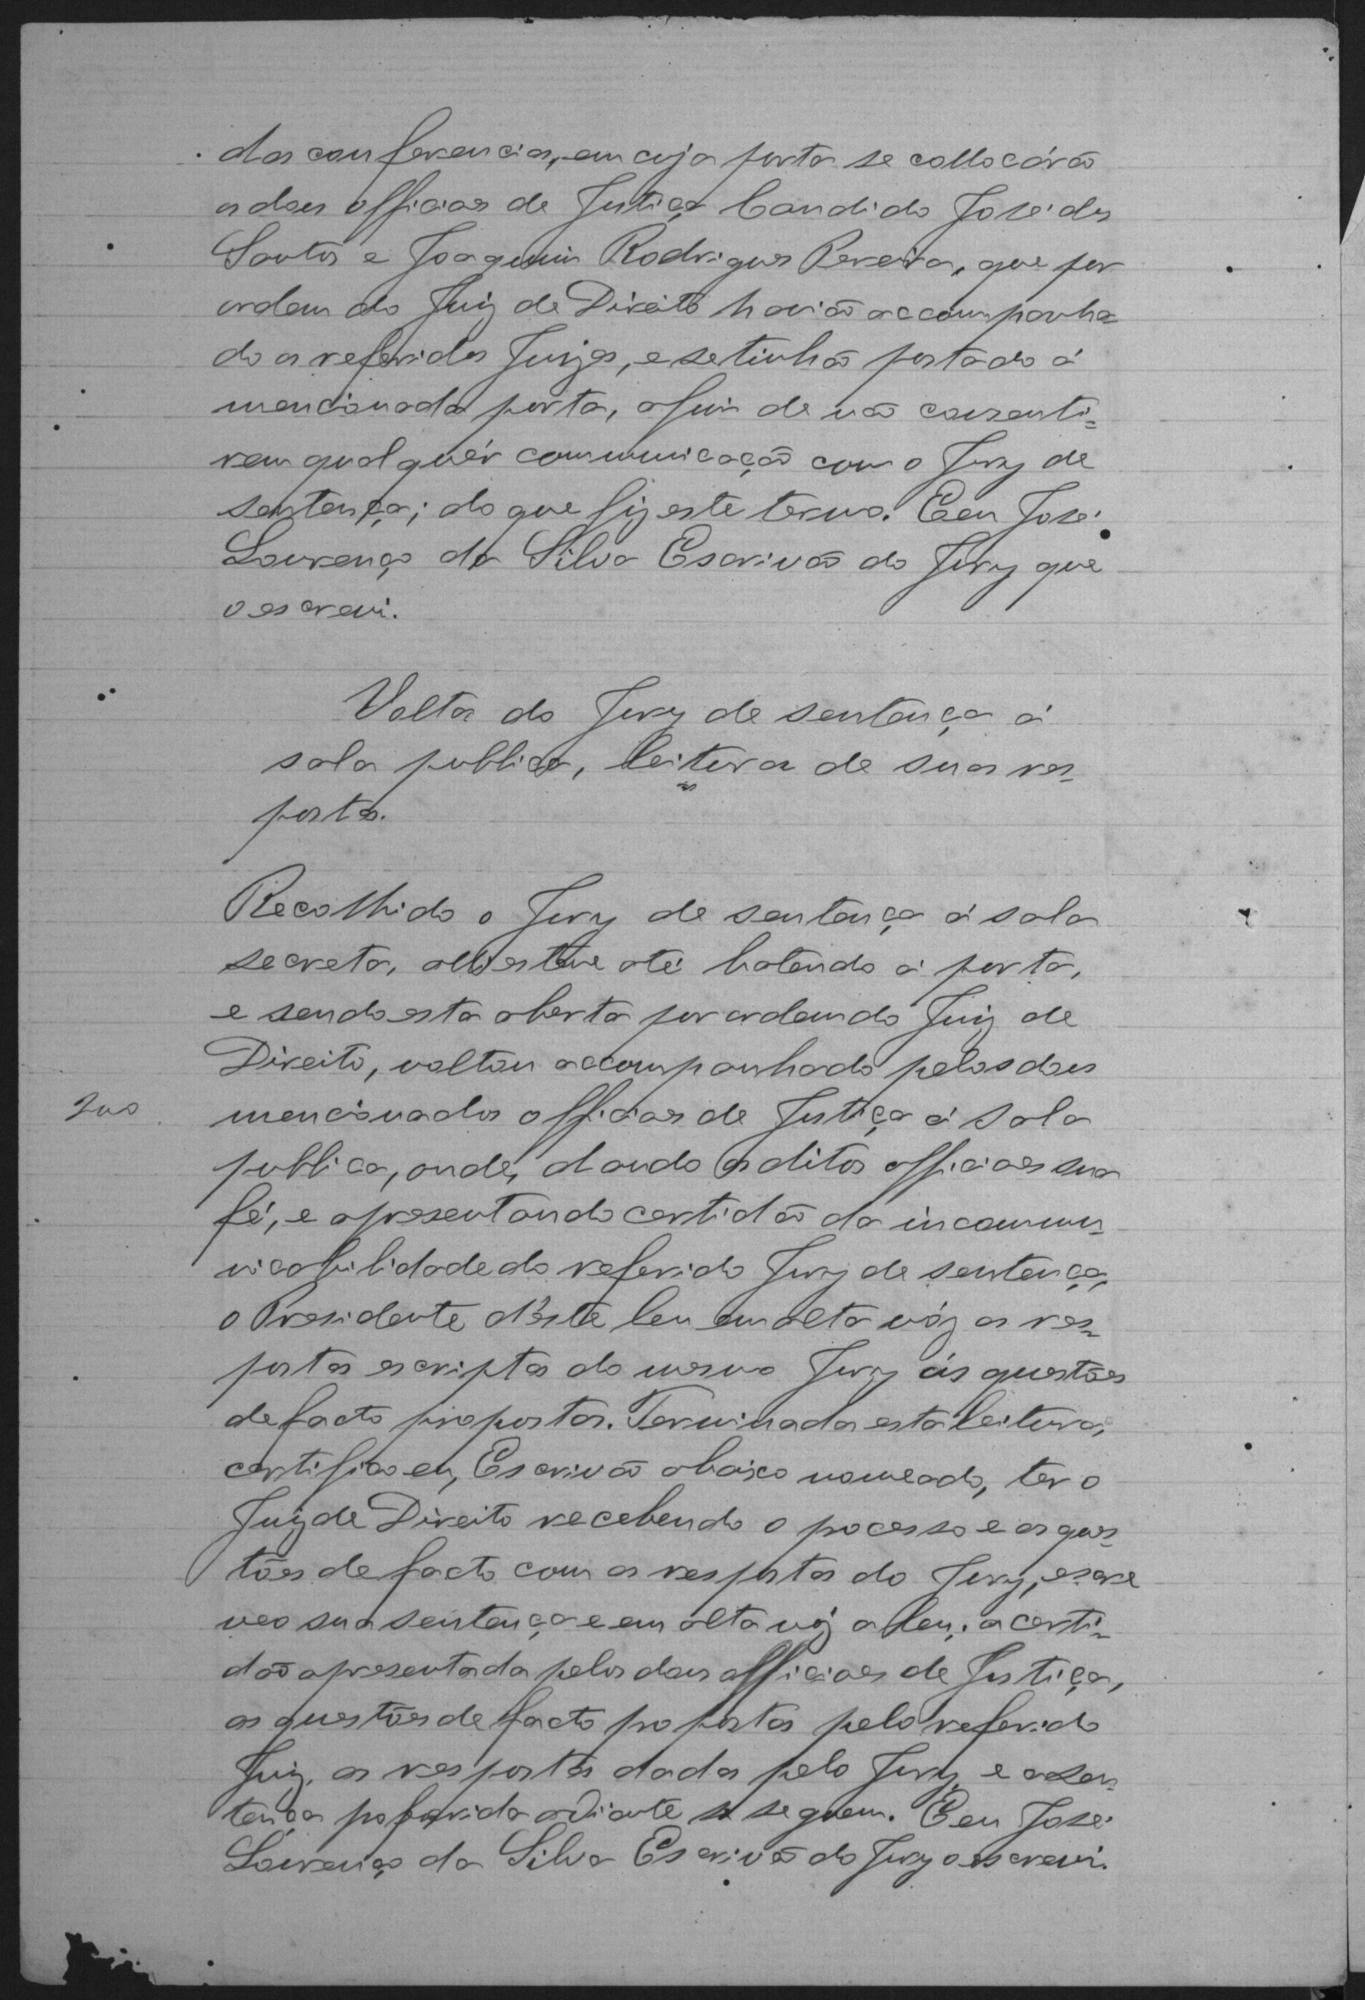 das conferencias, em cuja porta se collocárão
os dous officiaes de Justiça Candido José dos
Santos e Joaquim Rodrigues Pereira, que por
ordem do Juiz de Direito havião accompanha=
do os referidos Juizes, e se tinhão postado á
mencionada porta, afim de não consenti=
rem qualquér communicação com o Jury de
sentença; do que fiz este termo. E eu José
Lourenço da Silva Escrivão do Jury que
o escrevi.
Volta do Jury de sentença á
sala publica, leitura de suas res=
postas.
Recolhido o Jury de sentença á sala
secreta, alli esteve até batendo á porta,
e sendo esta aberta por ordem do Juiz de
Direito, voltou accompanhado pelos dous
mencionados officiaes de Justiça á sala
publica, onde, dando os ditos officiaes sua
fé, e apresentando certidão da incommu=
nicabilidade do referido Jury de sentença,
o Presidente d'éste leu em alta vóz as res=
postas escriptas do mesmo Jury ás questões
de facto propostas. Terminada esta leitura,
certifico eu, Escrivão abaixo nomeado, ter o
Juiz de Direito recebendo o processo e as ques=
tões de facto com as respostas do Jury, escre
veo sua sentença e em alta vóz a leu; a certi=
dão apresentada pelos dous officiaes de Justiça,
as questões de facto propostas pelo referido
Juiz, as respostas dadas pelo Jury e a sen=
tença proferida adiante se seguem. E eu José
Lourenço da Silva Escrivão do Jury o escrevi.